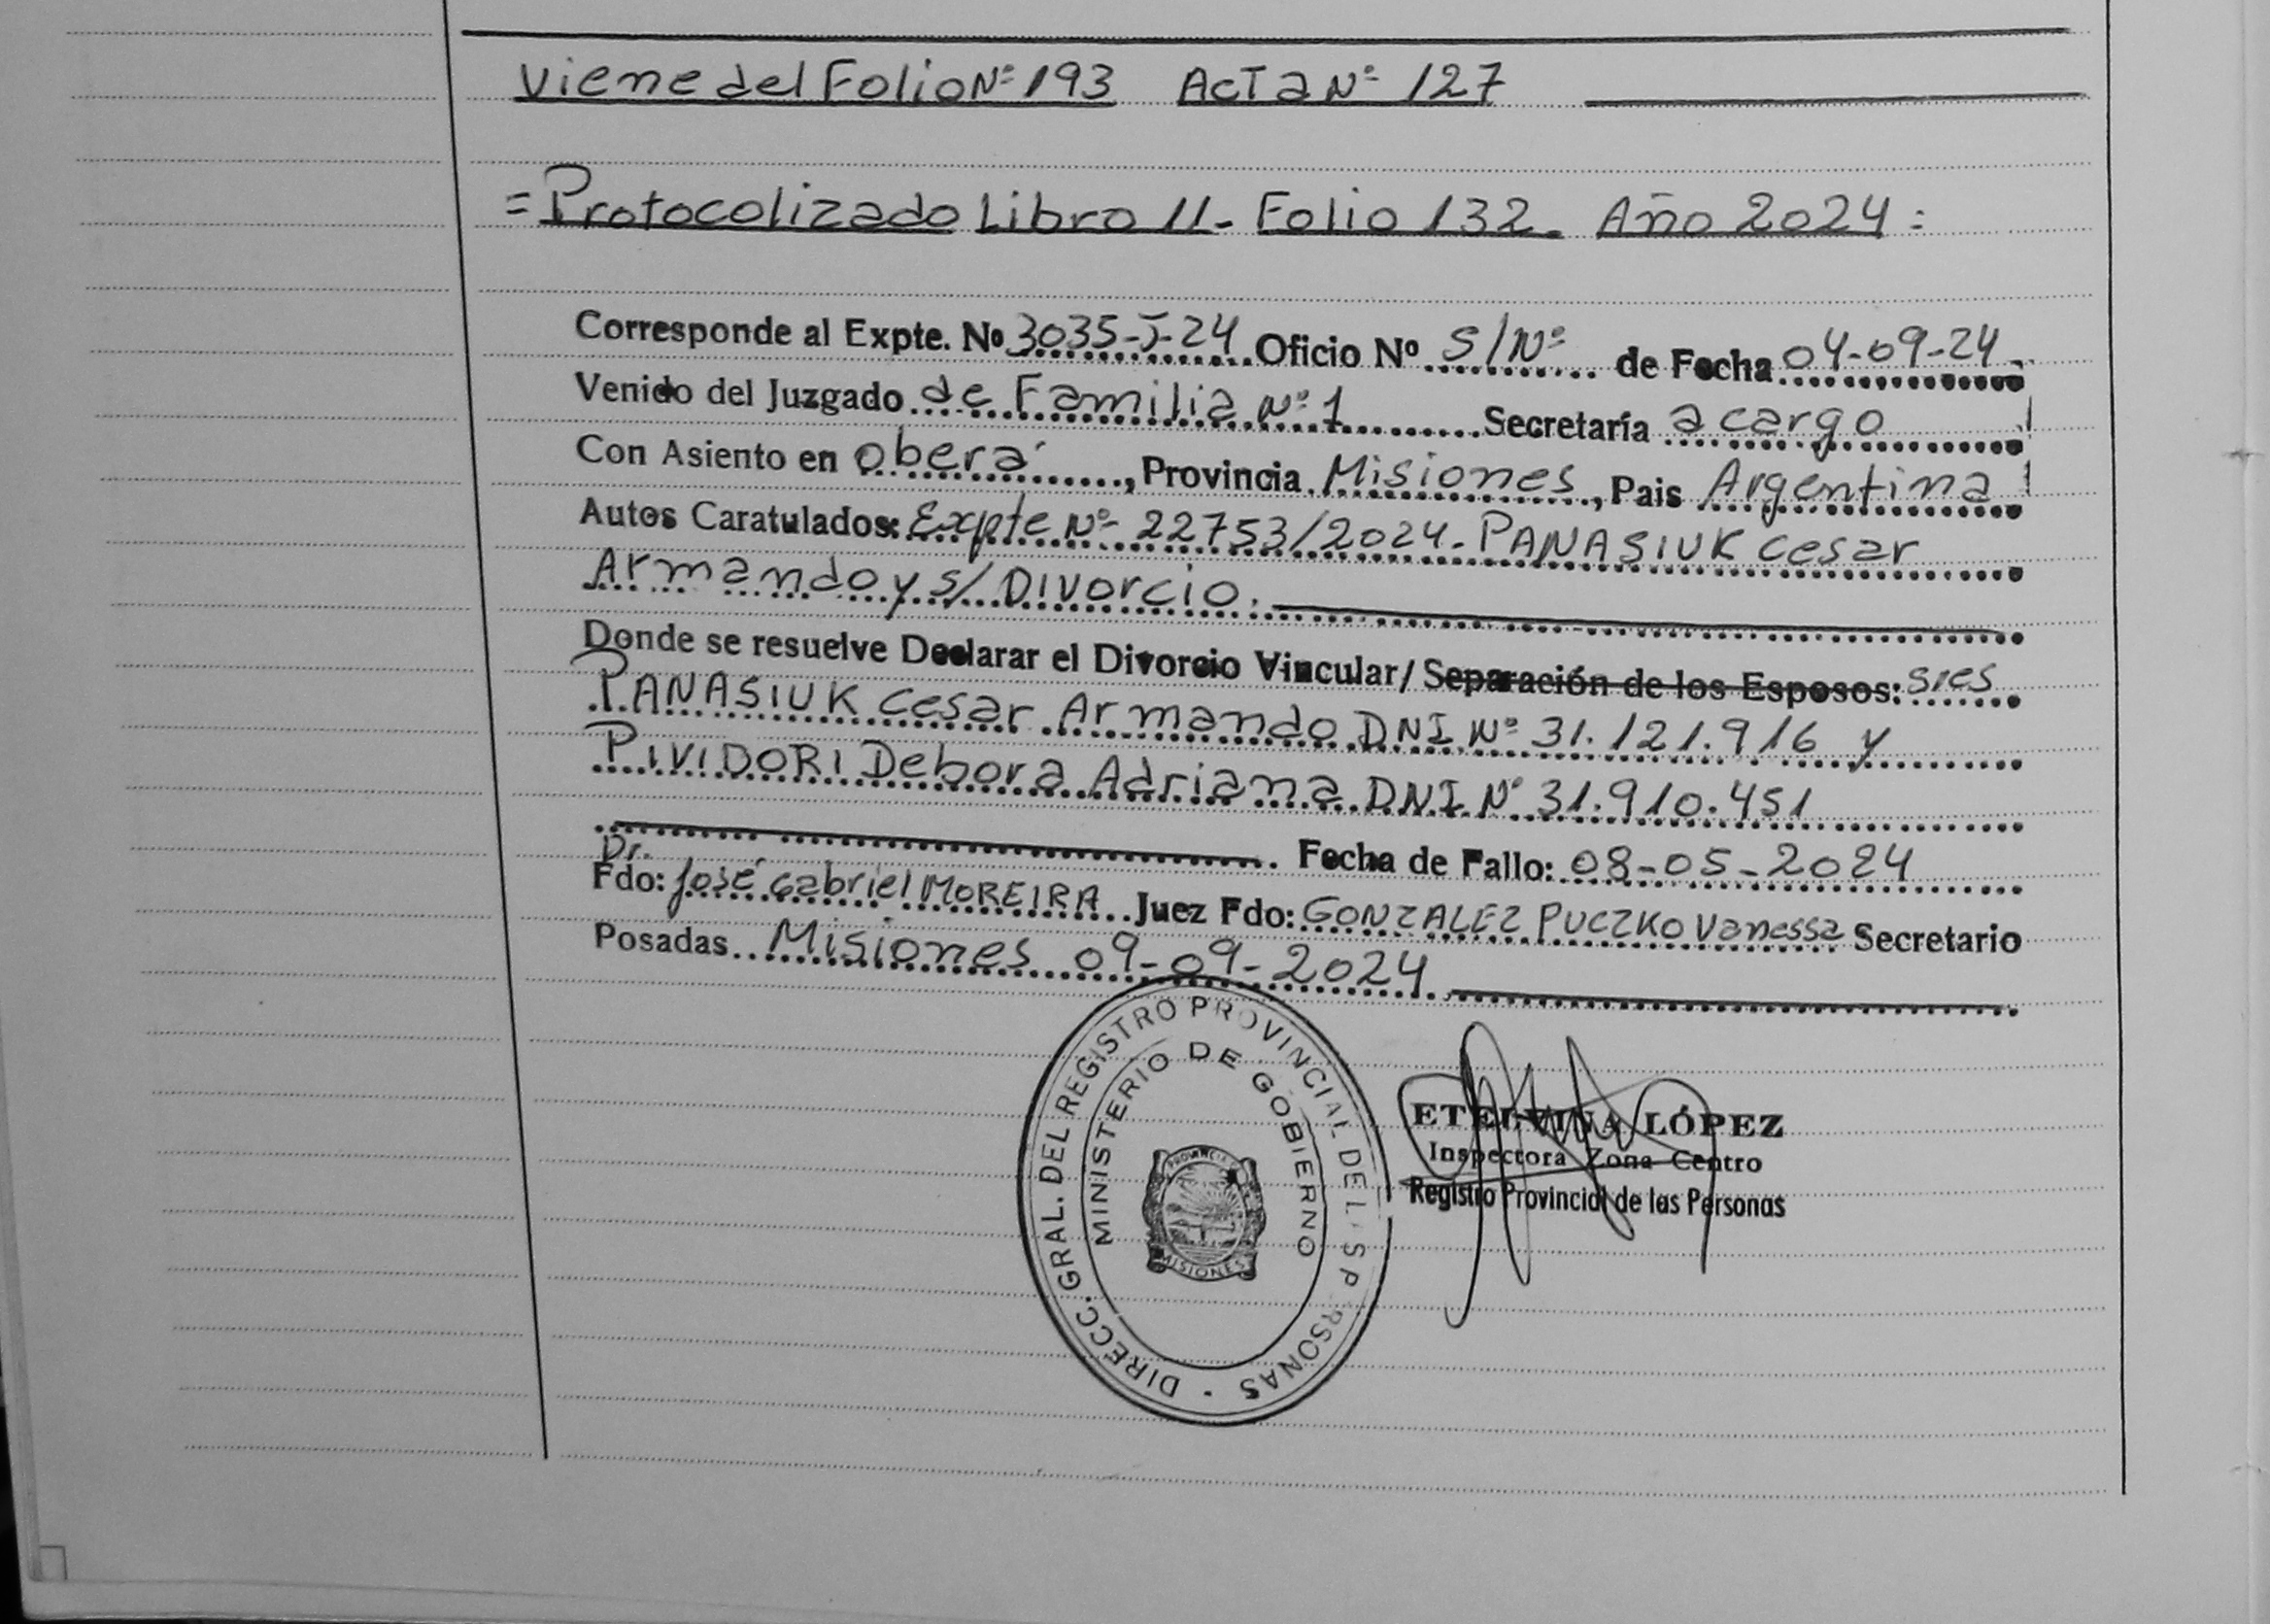 Viene del Folio Nº 193 ActaNº 127
=Protocolizado Libro 11- Folio 132. Año 2024=
Corresponde al Expte. Nº 3035-J-24 Oficio Nº S/Nº de Fecha 04-09-24.
Venido del Juzgado de Familia Nº 1 Secretaría a cargo
Con Asiento en oberá, Provincia Misiones, Pais Argentina
Autos Caratulados: Expte Nº 22753/2024- PANASIUK Cesar
Armando y s/ Divorcio.
Donde se resuelve Declarar el Divorcio Vincular/ Separación de los Esposos: sres
PANASIUK Cesar Armando DNI Nº 31.121.916 y
PIVIDORI Debora Adriana DNI Nº 31.910.451
. Fecha de Fallo: 08-05-2024
Dr.
Fdo: José Gabriel MOREIRA Juez Fdo: GONZALEZ PUCZKO Vanessa Secretario
Posadas Misiones 09-09-2024
DIRECC. GRAL. DEL REGISTRO PROVINCIAL DE L S P RSONAS
MINISTERIO DE GOBIERNO
PROVINCIA
MISIONES
ETELVINA LÓPEZ
Inspectora Zona Centro
Registro Provincial de las Personas